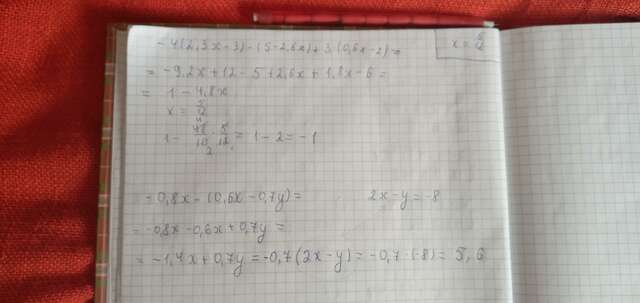 -4(2,3x-3)-(5-2,6x)+3(0,6x-2)=
x=5/12
=-9,2x+12-5+2,6x+1,8x-6=
= 1-4,8x
x=5/12
1-48/10·5/12=1-2=-1
-0,8x-(0,6x-0,7y)= 2x-y=-8
=-0,8x-0,6x+0,7y=
=-1,4x+0,7y=-0,7(2x-y)=-0,7·(-8)=5,6